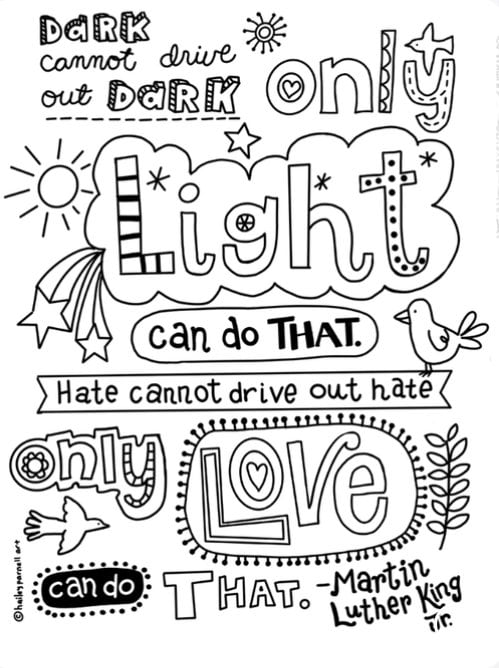 DaRK
cannot drive
out DaRK only
Light
can do THAT.
Hate cannot drive out hate
only Love
can do THAT. -Martin
Luther King
Jr.
©hailey parnell art